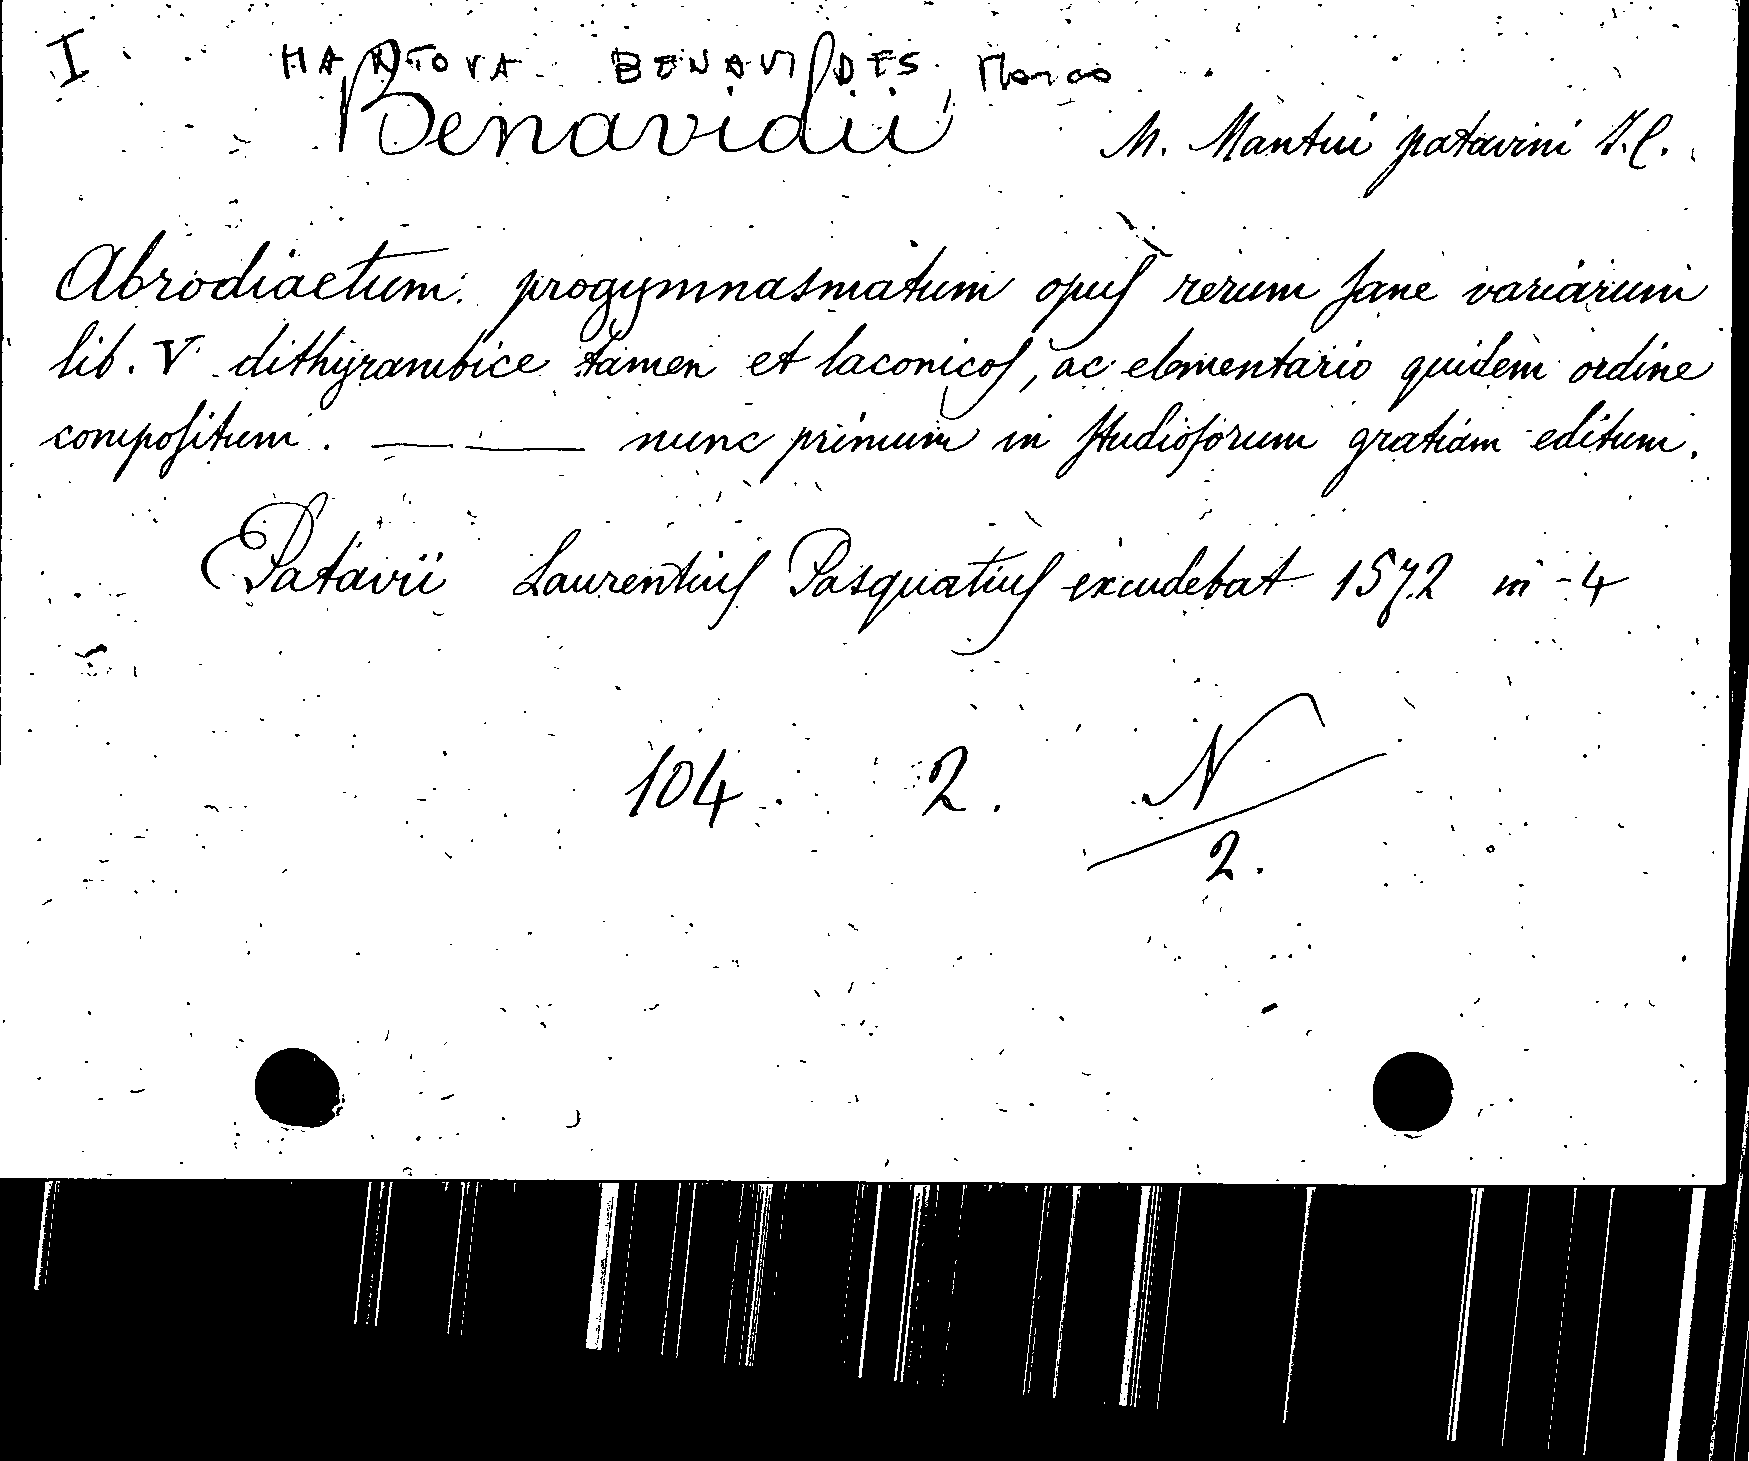 I MANTOVA BENAVIDES, Marco
Benavidii M. Mantui patavini I.C.
Abrodiaetum: progymnasmatum opuſ rerum ſane variarum
lib. V dithyrambice tamen et laconicoſ, ac elementario quidem ordine
compoſitum. — — nunc primum in ſtudioſorum gratiam editum.
Patavii Laurentiuſ Pasquatiuſ excudebat 1572 in-4
104. 2. N
2.